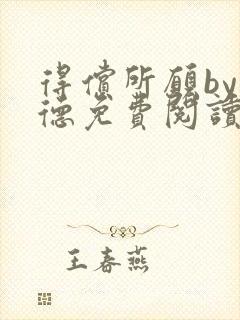 得償所願by
德免費閱讀
王春燕